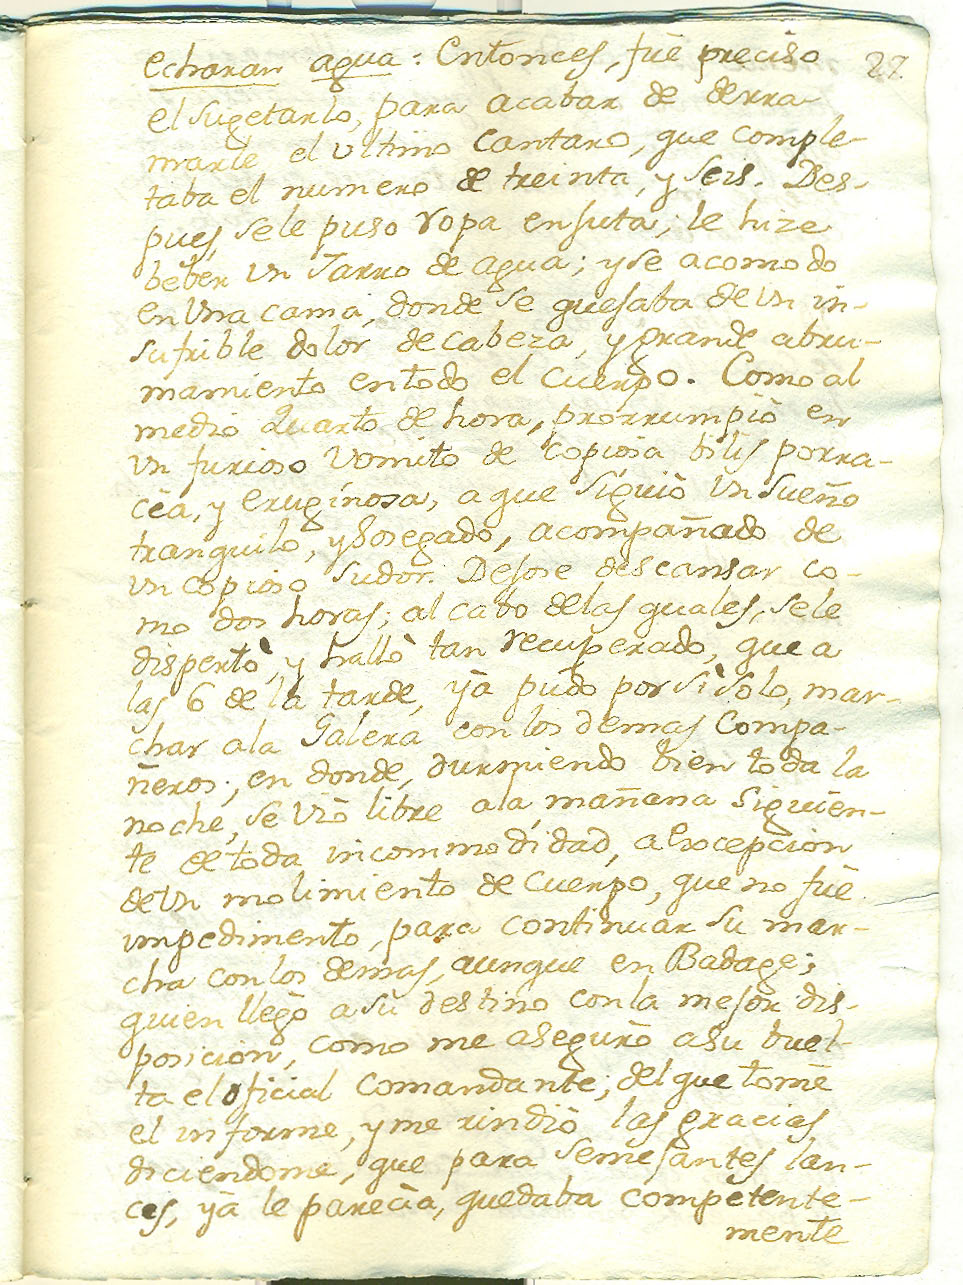 echaran agua: Entonces, fuè preciso 22.
el sugetarlo, para acabar de derra-
marle el vltimo Cantaro, que comple-
taba el numero de treinta, y seis. Des-
pues, sele puso ropa enjuta; le hize
beber vn Jarro de agua; y se acomodo
en Vna cama, donde se quejaba de vn in-
sufrible dolor de cabeza, y grande abru-
mamiento entodo el cuerpo. Como al
medio Quarto de hora, prorrumpiò en
vn furioso vomito de copiosa bilis porra-
cèa, y eruginosa, a que siguiò vn sueño
tranquilo, y sosegado, acompañado de
vn copioso sudor. Dejose descansar co-
mo dos horas; al cabo delas quales, sele
dispertò, y hallò tan recuperado, que a
las 6 de la tarde, yà pudo por sì solo, mar-
char ala Galera con los demas Compa-
ñeros; en donde, durmiendo bien toda la
noche, se viò libre ala mañana siguien-
te de toda incommodidad, a excepcion
de vn molimiento de cuerpo, que no fuè
impedimento, para continuar su mar-
cha con los demas, aunque en Badage;
quien llegò a sù destino con la mejor dis-
posicion, como me asegurò a su buel-
ta el oficial Comandante; del que tomè
el informe, y me rindiò las gracias,
diciendome, que para semejantes lan-
ces, yà le parecia, quedaba competente-
mente